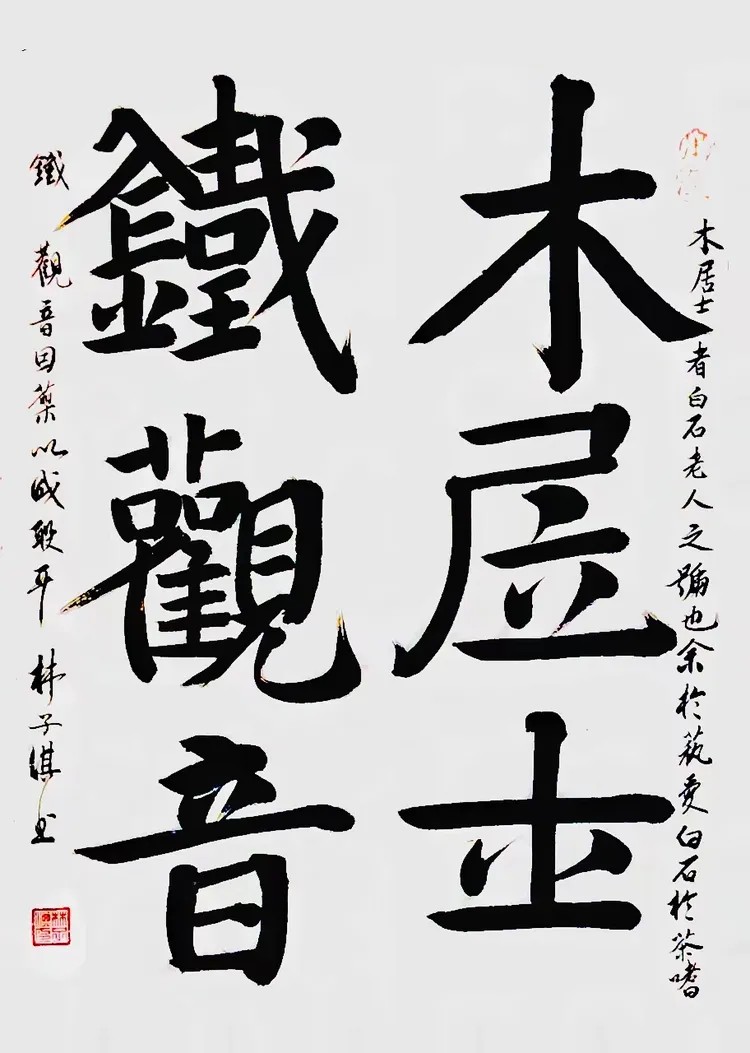 木居士
鐵觀音
木居士者白石老人之號也余於藝愛白石於茶嗜
鐵觀音因葉以成聯耳 林子淇書